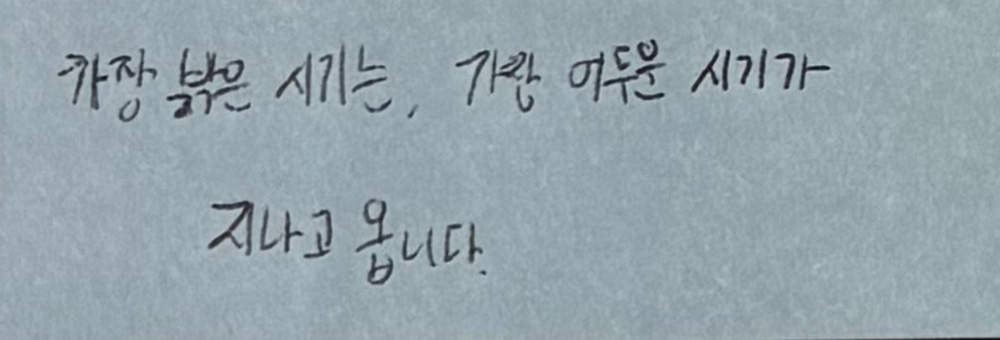 가장 밝은 시기는, 가장 어두운 시기가
지나고 옵니다.